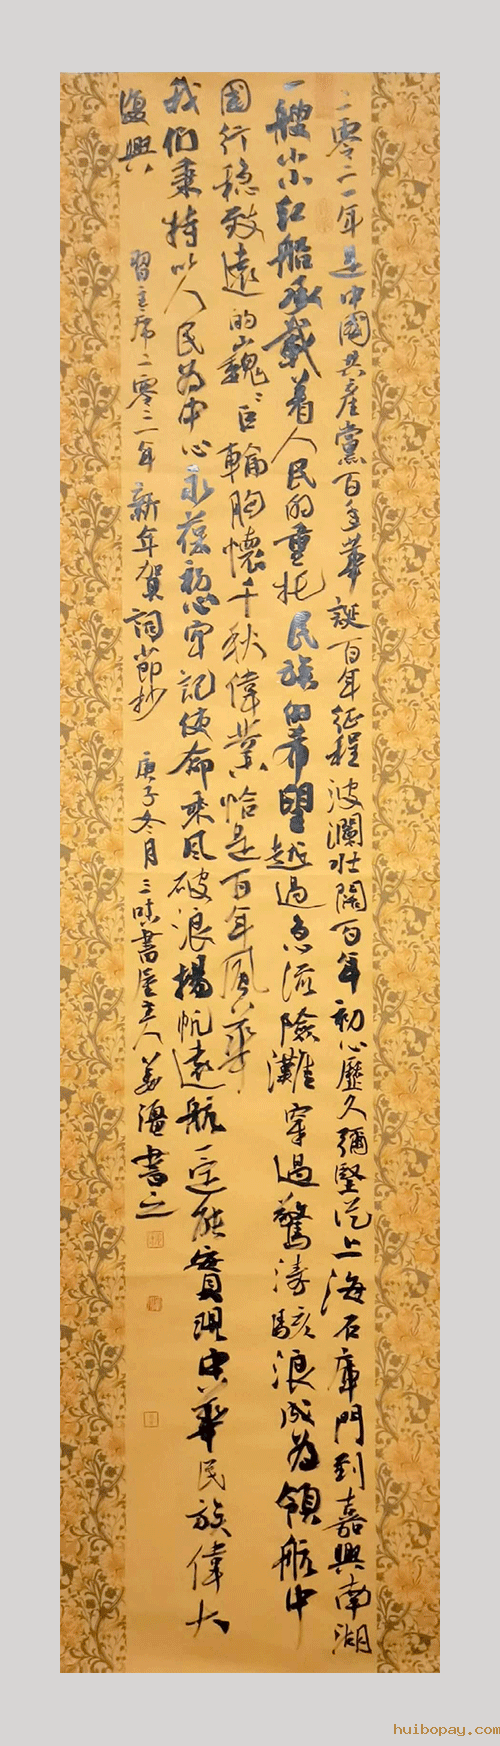 二零二一年是中國共產黨百年華誕百年征程波瀾壯闊百年初心歷久彌堅從上海石庫門到嘉興南湖
一艘小小紅船承載着人民的重托民族的希望越過急流險灘穿過驚濤駭浪成為領航中
國行穩致遠的巍巍巨輪胸懷千秋偉業恰是百年風華
我們秉持以人民為中心永葆初心牢記使命乘風破浪揚帆遠航一定能實現中華民族偉大
復興 習主席二零二一年新年賀詞節抄 庚子冬月三味書屋主人姜溫書之
huibopay.com